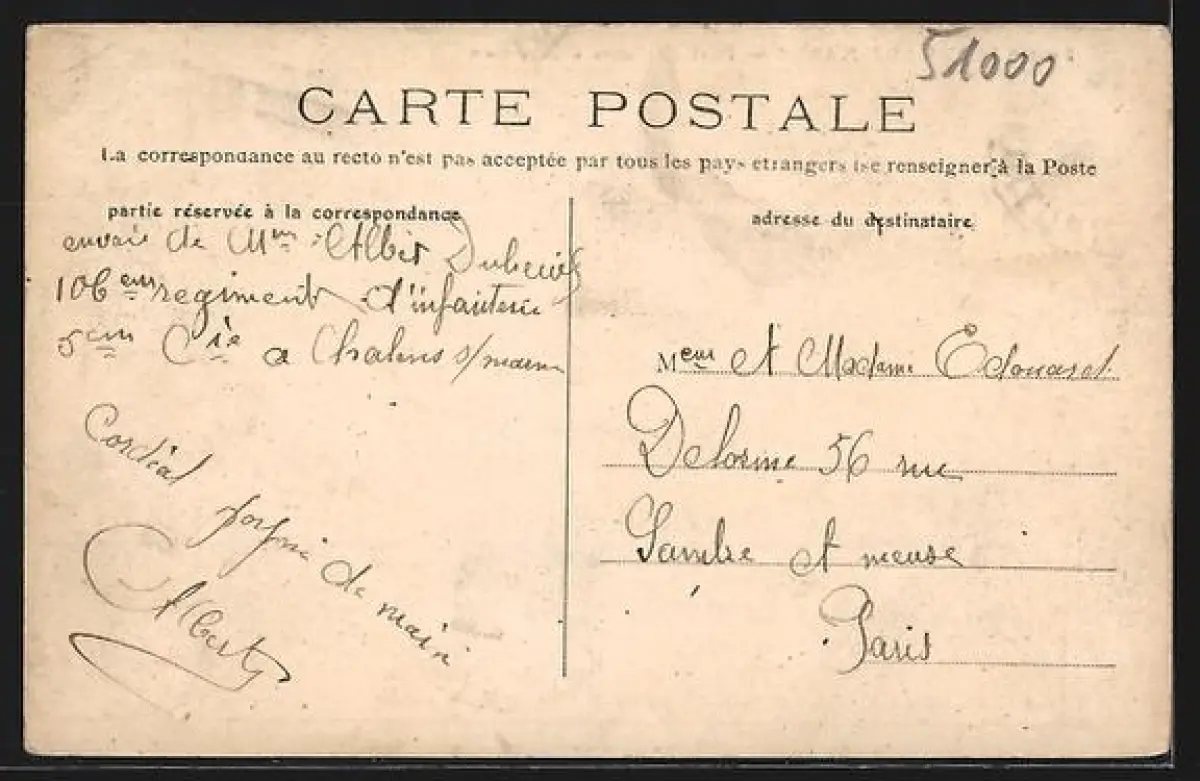 51000
CARTE POSTALE
La correspondance au recto n'est pas acceptée par tous les pays etrangers (se renseigner à la Poste
partie réservée à la correspondance
adresse du destinataire
envoie de Mm Albert
106 em regiment d'infanterie
5em Cie a Chalons s/marne
Cordial poigné de main
Albert
Meur et Madame Edouard
Delorme 56 rue
Sambre et meuse
Paris